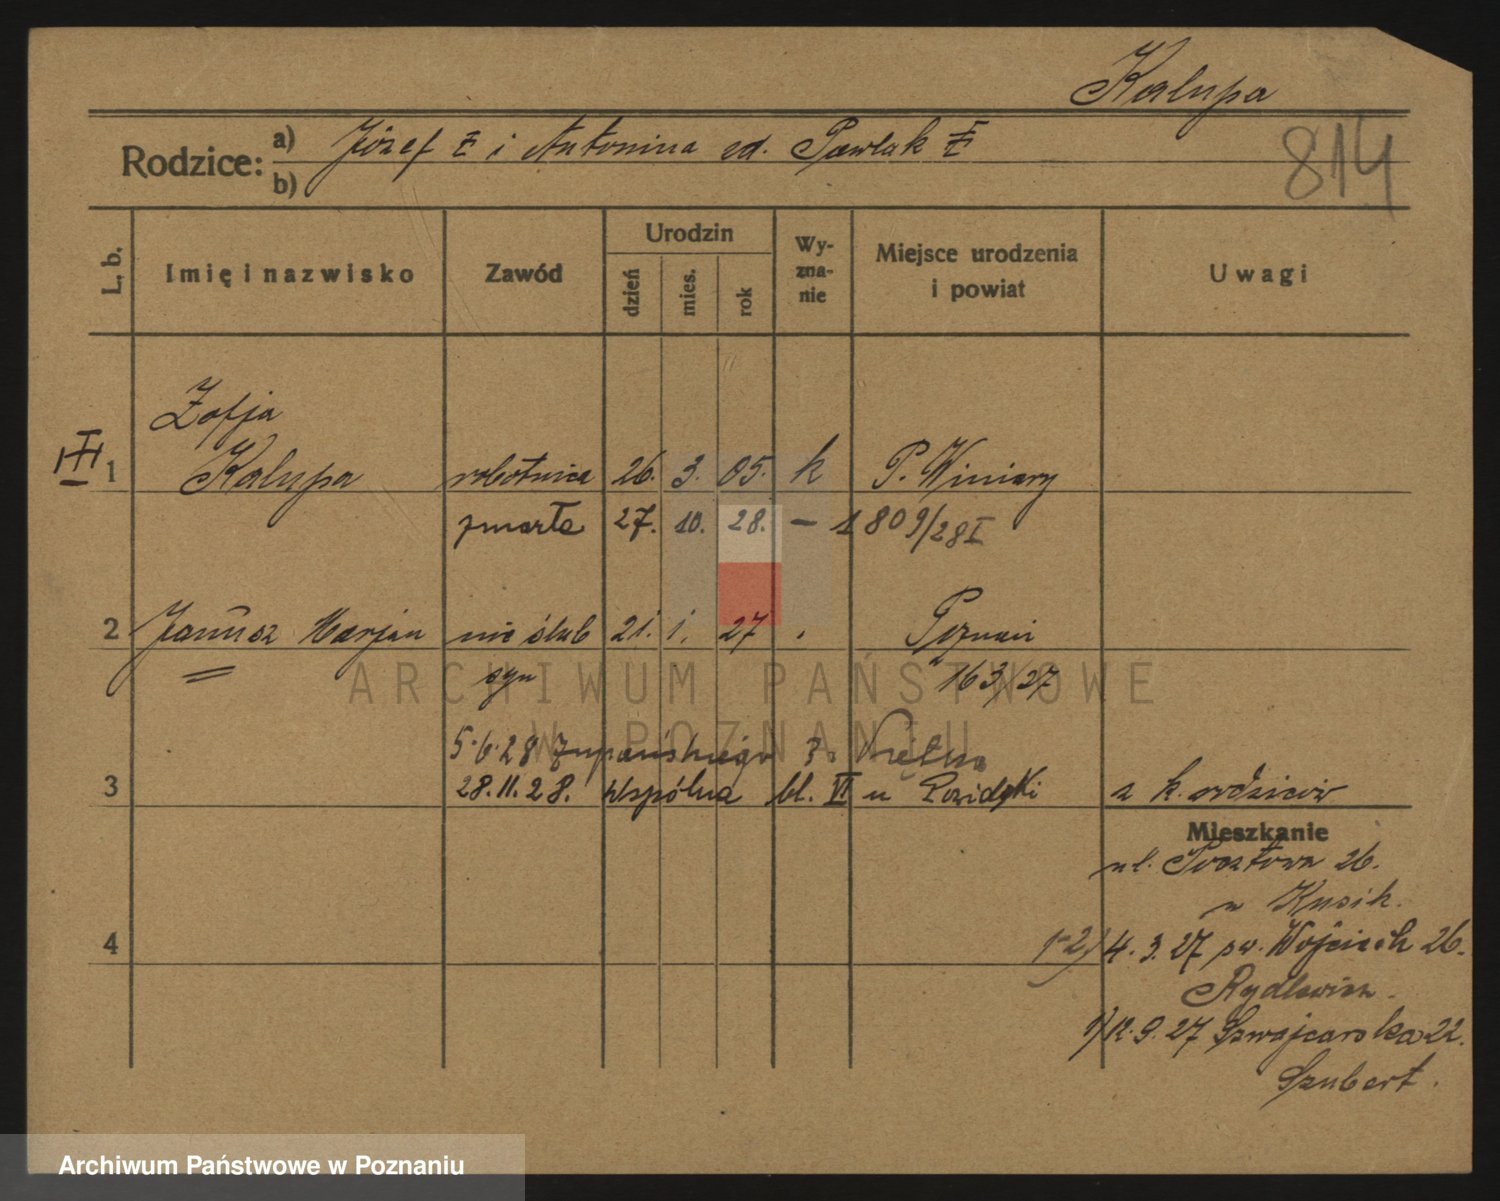 Kalupa
814
Rodzice: a) Józef i Antonina zd. Pawlak
b)
L. b. Imię i nazwisko Zawód Urodzin dzień mies. rok Wyznanie Miejsce urodzenia i powiat Uwagi
Zofja
III 1 Kalupa robotnica 26. 3. 05. k P. Winiary
zmarła 27. 10. 28. – 1809/28 I
2 Janusz Marjan nie ślub 21. 1. 27 . Poznań
syn 163/27
5.6.28 Zupańskiego Krętka
3 28.11.28. Wspólna bl. VI u z k. rodziców
Mieszkanie
ul. Pocztowa 26.
u Kusik.
4 1-2) 4. 3. 27 św. Wojciech 26.
Rydlewicz.
1) 12. 9. 27 Szwajcarska 22.
Szubert.
ARCHIWUM PAŃSTWOWE
W POZNANIU
Archiwum Państwowe w Poznaniu